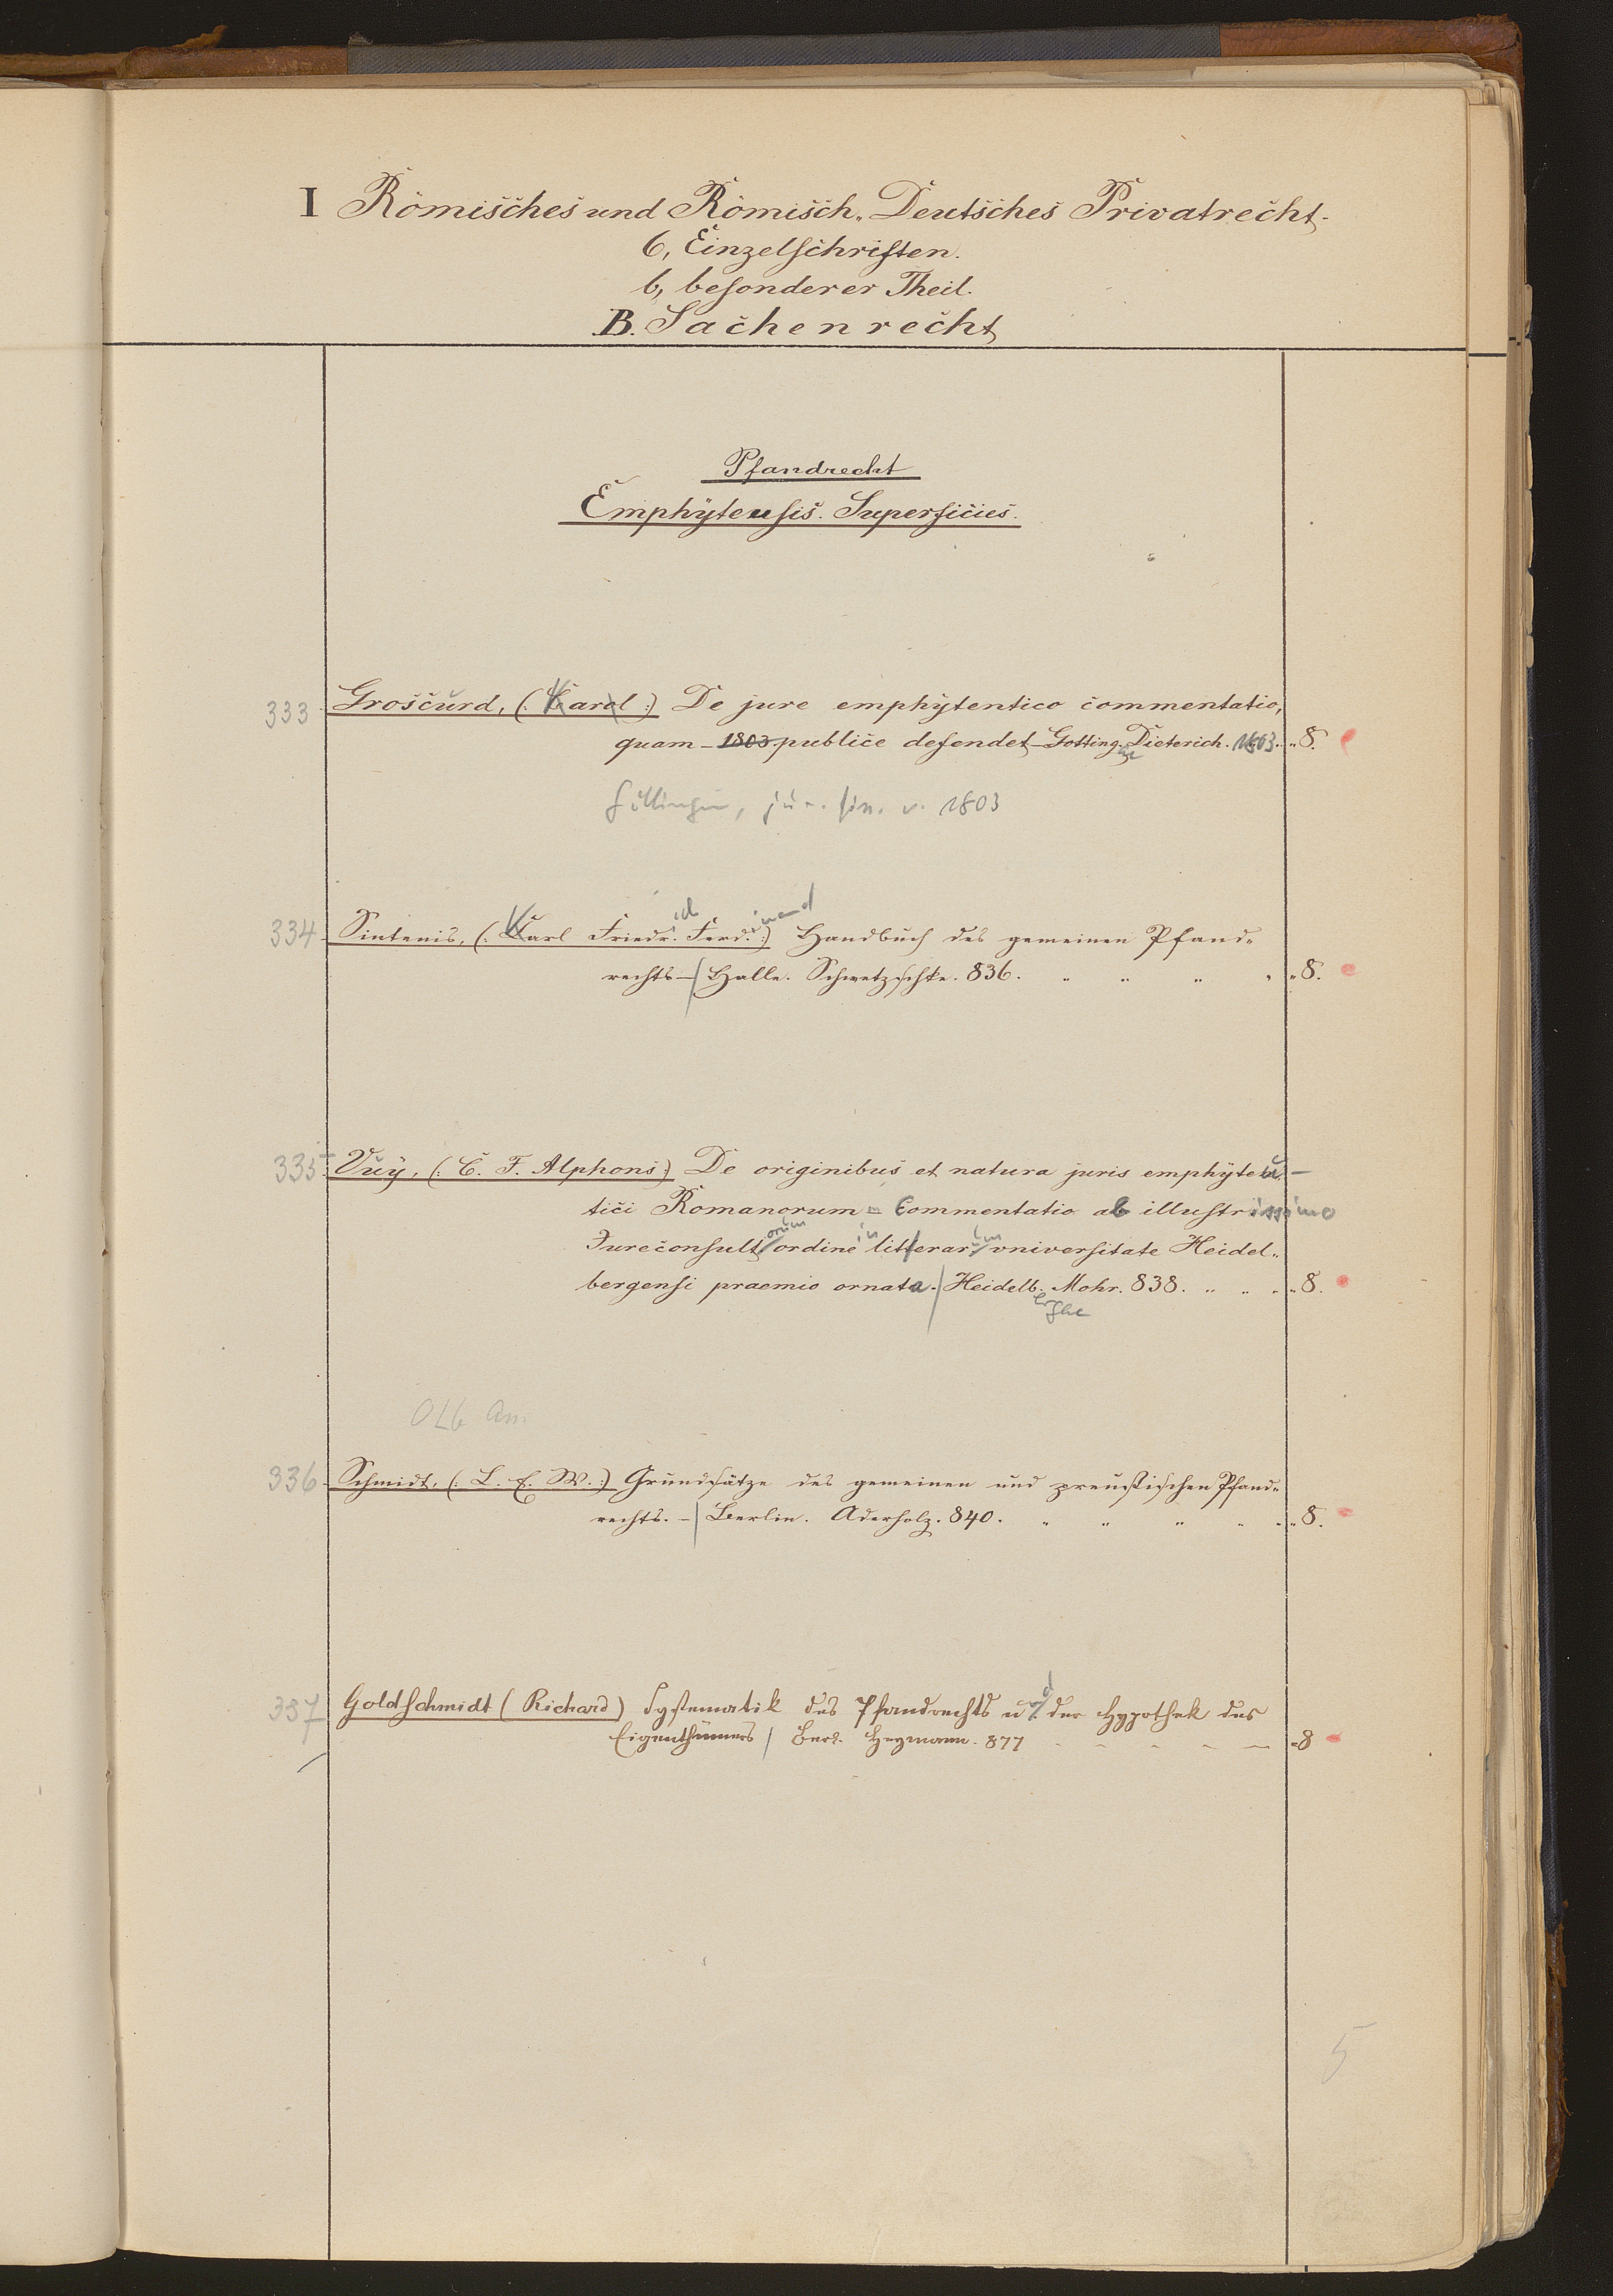 I Römisches und Römisch-Deutsches Privatrecht.
6, Einzelschriften.
b, besonderer Theil.
B. Sachenrecht
Pfandrecht
Emphyteusis. Superficies.
333 Groscurd, (: Karl :) De jure emphyteutico commentatio,
quam - 1803 publice defendet - Gotting. Dieterich. 1803. „ 8.
Göttingen, jur. Diss. v. 1803
334 Sintenis, (: Karl Friedrich Ferdinand :) Handbuch des gemeinen Pfand-
rechts - / Halle. Schwetzschke. 836. „ „ „ „ „ 8.
335 Vuy, (: C. F. Alphons :) De originibus et natura juris emphyteu-
tici Romanorum = Commentatio ab illustrissimo
Jureconsultorum ordine in litterarum universitate Heidel-
bergensi praemio ornata. / Heidelb. Mohr. 838. „ „ „ „ 8.
ergae
OLG
336 Schmidt, (: L. E. W. :) Grundsätze des gemeinen und preußischen Pfand-
rechts. - / Berlin. Aderholz. 840. „ „ „ „ „ 8.
337 Goldschmidt (Richard) Systematik des Pfandrechts und der Hypothek des
Eigenthümers / Berl. Heymann. 877 - - - - - „ 8
5